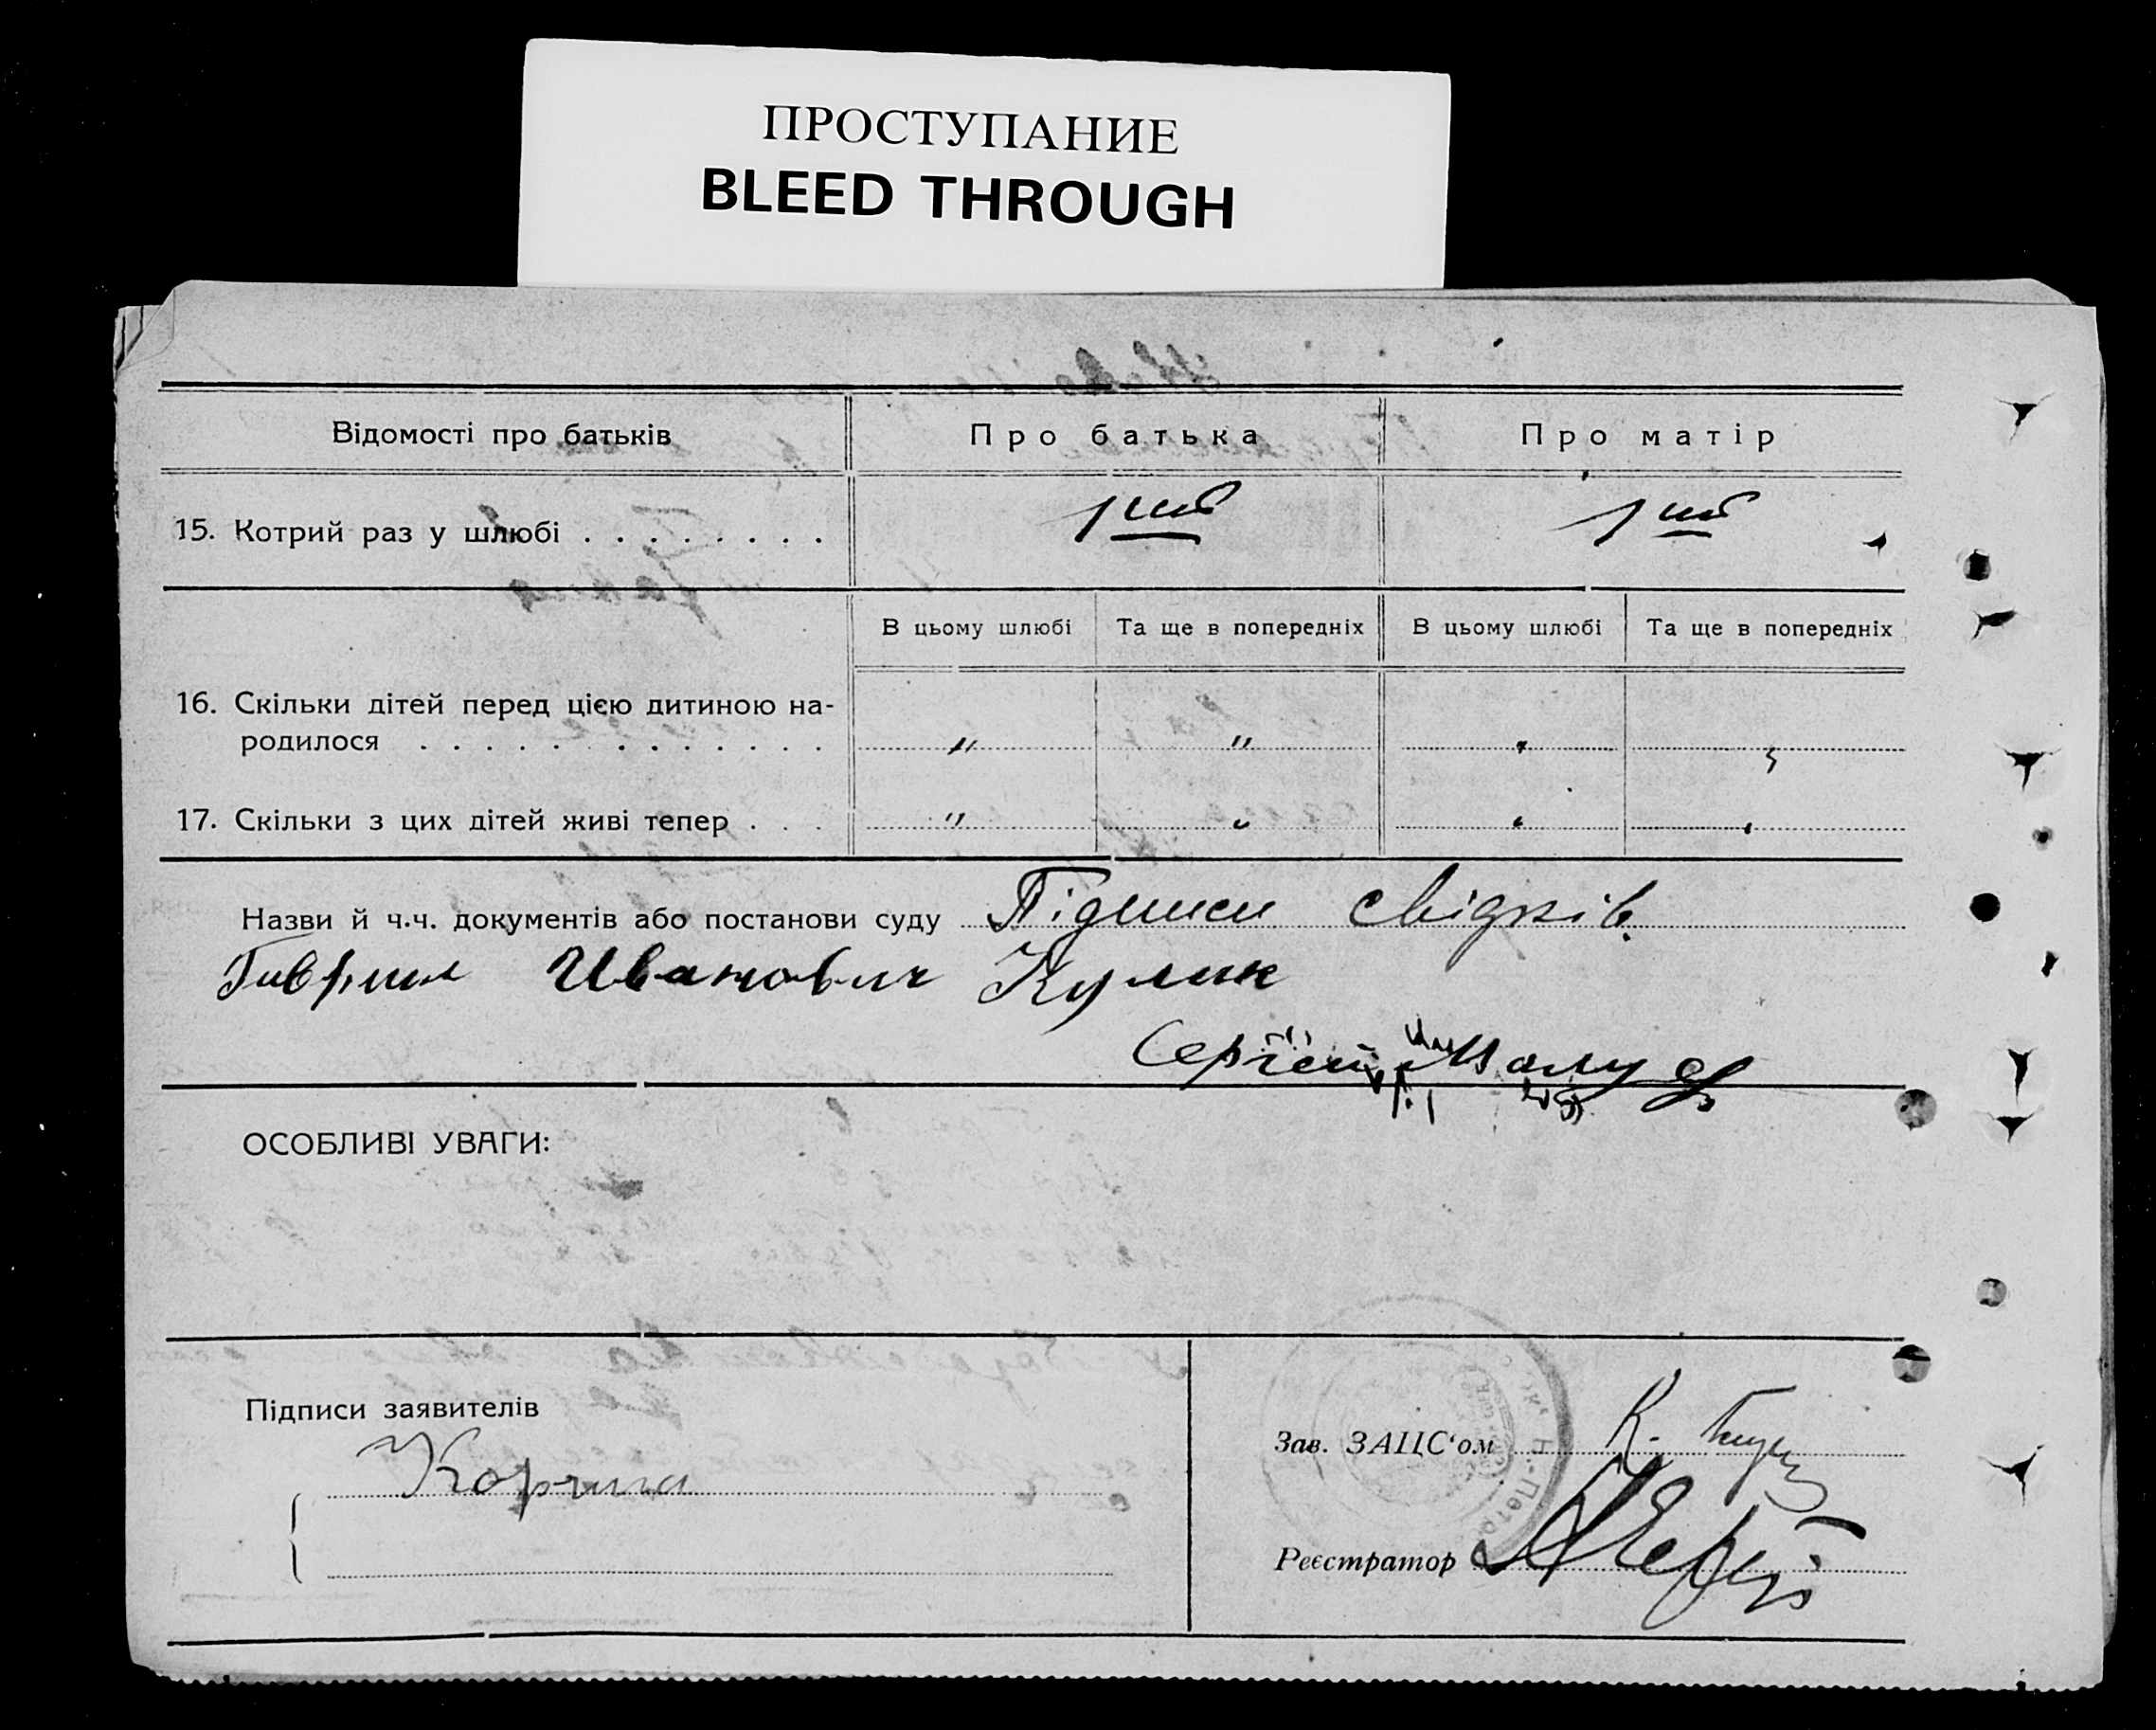 ПРОСТУПАНИЕ
BLEED THROUGH
Відомості про батьків
Про батька
Про матір
15. Котрий раз у шлюбі . . . . . . . .
1ший
1ший
В цьому шлюбі
Та ще в попередніх
В цьому шлюбі
Та ще в попередніх
16. Скільки дітей перед цією дитиною на-
родилося . . . . . . . . . . . . .
" " " "
17. Скільки з цих дітей живі тепер . . .
" " " "
Назви й ч.ч. документів або постанови суду Підписи свідків.
Гаврил Иванович Кулик
Сергієй
ОСОБЛИВІ УВАГИ:
Підписи заявителів
Корчма
Зав. ЗАЦС'ом К.
Реєстратор